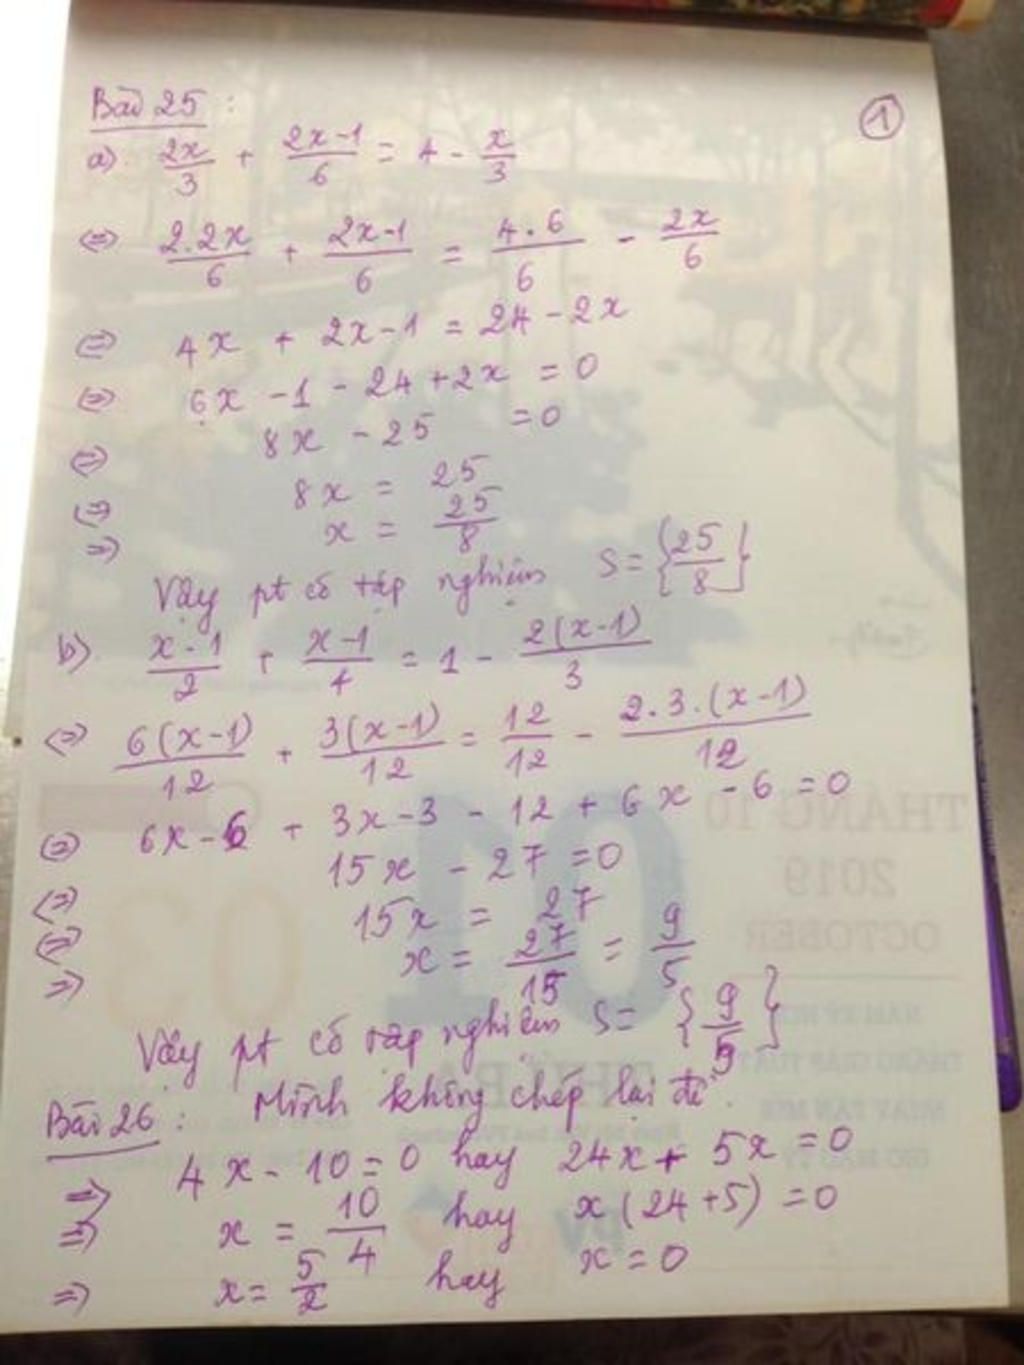 Bài 25 :
①
a) 2x/3 + (2x-1)/6 = 4 - x/3
<=> 2.2x/6 + (2x-1)/6 = 4.6/6 - 2x/6
<=> 4x + 2x-1 = 24-2x
<=> 6x -1 - 24 +2x = 0
<=> 8x - 25 =0
<=> 8x = 25
=> x = 25/8
Vậy pt có tập nghiệm S = {25/8}
b) (x-1)/2 + (x-1)/4 = 1 - 2(x-1)/3
<=> 6(x-1)/12 + 3(x-1)/12 = 12/12 - 2.3.(x-1)/12
<=> 6x-6 + 3x-3 - 12 + 6x - 6 =0
<=> 15x - 27 =0
<=> 15x = 27
=> x = 27/15 = 9/5
Vậy pt có tập nghiệm S= {9/5}
Bài 26 : Mình không chép lại đề.
=> 4x - 10 = 0 hay 24x + 5x = 0
=> x = 10/4 hay x(24+5) = 0
=> x = 5/2 hay x = 0
THÁNG 10
2019
OCTOBER
01
03